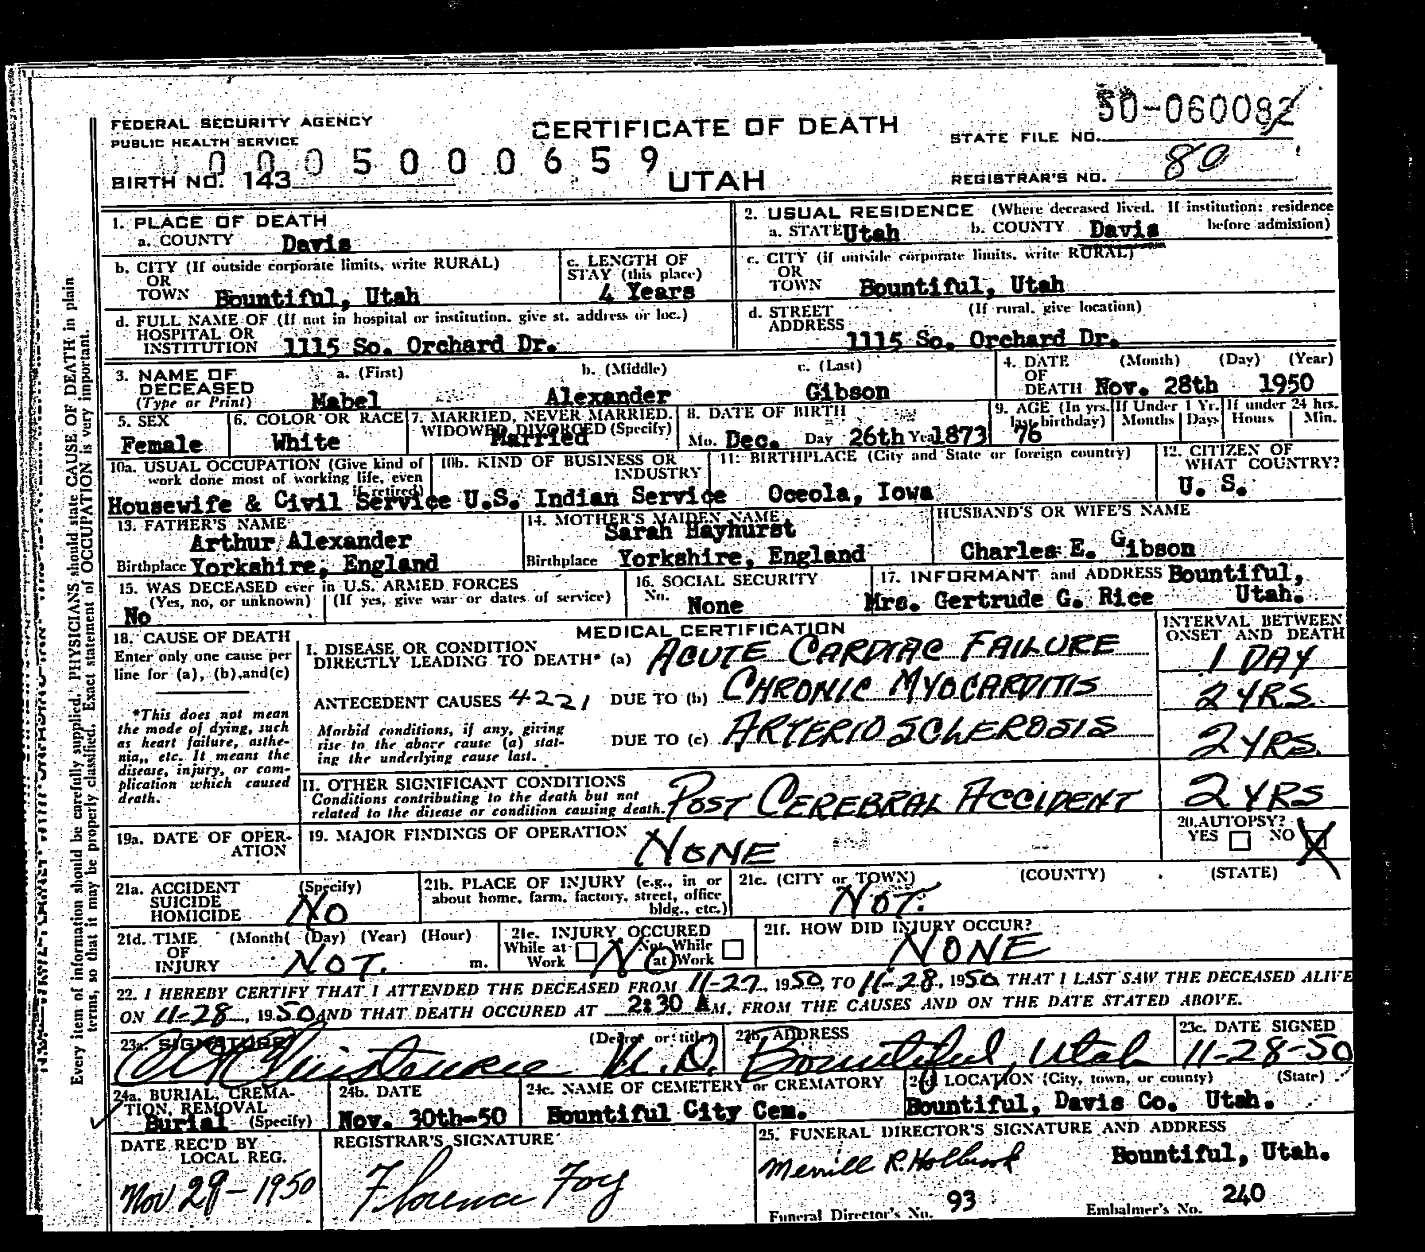 50-060082
FEDERAL SECURITY AGENCY
PUBLIC HEALTH SERVICE
CERTIFICATE OF DEATH
STATE FILE NO.
0005000659
BIRTH NO. 143
UTAH
REGISTRAR'S NO. 80
1. PLACE OF DEATH
a. COUNTY Davis
2. USUAL RESIDENCE (Where deceased lived. If institution: residence before admission)
a. STATE Utah b. COUNTY Davis
b. CITY (If outside corporate limits, write RURAL)
OR
TOWN Bountiful, Utah
c. LENGTH OF
STAY (this place)
4 Years
c. CITY (if outside corporate limits, write RURAL)
OR
TOWN Bountiful, Utah
d. FULL NAME OF (If not in hospital or institution, give st. address or loc.)
HOSPITAL OR
INSTITUTION 1115 So. Orchard Dr.
d. STREET (If rural, give location)
ADDRESS 1115 So. Orchard Dr.
3. NAME OF
DECEASED
(Type or Print)
a. (First) Mabel
b. (Middle) Alexander
c. (Last) Gibson
4. DATE (Month) (Day) (Year)
OF
DEATH Nov. 28th 1950
5. SEX
Female
6. COLOR OR RACE
White
7. MARRIED, NEVER MARRIED,
WIDOWED, DIVORCED (Specify)
Married
8. DATE OF BIRTH
Mo. Dec. Day 26th Year 1873
9. AGE (In yrs. last birthday) 76
If Under 1 Yr. Months Days
If under 24 hrs. Hours Min.
10a. USUAL OCCUPATION (Give kind of
work done most of working life, even
if retired)
Housewife & Civil Service
10b. KIND OF BUSINESS OR
INDUSTRY
U.S. Indian Service
11. BIRTHPLACE (City and State or foreign country)
Oceola, Iowa
12. CITIZEN OF
WHAT COUNTRY?
U. S.
13. FATHER'S NAME
Arthur Alexander
Birthplace Yorkshire, England
14. MOTHER'S MAIDEN NAME
Sarah Hayhurst
Birthplace Yorkshire, England
HUSBAND'S OR WIFE'S NAME
Charles E. Gibson
15. WAS DECEASED ever in U.S. ARMED FORCES
(Yes, no, or unknown) (If yes, give war or dates of service)
No
16. SOCIAL SECURITY
No. None
17. INFORMANT and ADDRESS Bountiful,
Mrs. Gertrude G. Rice Utah.
18. CAUSE OF DEATH
Enter only one cause per
line for (a), (b), and (c)
*This does not mean
the mode of dying, such
as heart failure, asthe-
nia, etc. It means the
disease, injury, or com-
plication which caused
death.
MEDICAL CERTIFICATION
INTERVAL BETWEEN
ONSET AND DEATH
I. DISEASE OR CONDITION
DIRECTLY LEADING TO DEATH* (a) ACUTE CARDIAC FAILURE 1 DAY
ANTECEDENT CAUSES 4221 DUE TO (b) CHRONIC MYOCARDITIS 2 YRS
Morbid conditions, if any, giving
rise to the above cause (a) stat-
ing the underlying cause last.
DUE TO (c) ARTERIOSCLEROSIS 2 YRS.
II. OTHER SIGNIFICANT CONDITIONS
Conditions contributing to the death but not
related to the disease or condition causing death.
POST CEREBRAL ACCIDENT 2 YRS
19a. DATE OF OPER-
ATION
19. MAJOR FINDINGS OF OPERATION
NONE
20. AUTOPSY?
YES NO X
21a. ACCIDENT (Specify)
SUICIDE
HOMICIDE NO
21b. PLACE OF INJURY (e.g., in or
about home, farm, factory, street, office
bldg., etc.)
21c. (CITY or TOWN) (COUNTY) (STATE)
NOT.
21d. TIME (Month) (Day) (Year) (Hour)
OF
INJURY NOT. m.
21e. INJURY OCCURED
While at Work Not While at Work
NO
21f. HOW DID INJURY OCCUR?
NONE
22. I HEREBY CERTIFY THAT I ATTENDED THE DECEASED FROM 11-27, 1950 TO 11-28, 1950 THAT I LAST SAW THE DECEASED ALIVE
ON 11-28, 1950 AND THAT DEATH OCCURED AT 2:30 A M. FROM THE CAUSES AND ON THE DATE STATED ABOVE.
23a. SIGNATURE (Degree or title) M.D.
23b. ADDRESS
Bountiful, Utah
23c. DATE SIGNED
11-28-50
24a. BURIAL, CREMA-
TION, REMOVAL
Burial (Specify)
24b. DATE
Nov. 30th-50
24c. NAME OF CEMETERY or CREMATORY
Bountiful City Cem.
24d. LOCATION (City, town, or county) (State)
Bountiful, Davis Co. Utah.
DATE REC'D BY
LOCAL REG.
Nov 29-1950
REGISTRAR'S SIGNATURE
Florence Foy
25. FUNERAL DIRECTOR'S SIGNATURE AND ADDRESS
Merrill R. Holbrook Bountiful, Utah.
Funeral Director's No. 93
Embalmer's No. 240
Every item of information should be carefully supplied. PHYSICIANS should state CAUSE OF DEATH in plain
terms, so that it may be properly classified. Exact statement of OCCUPATION is very important.